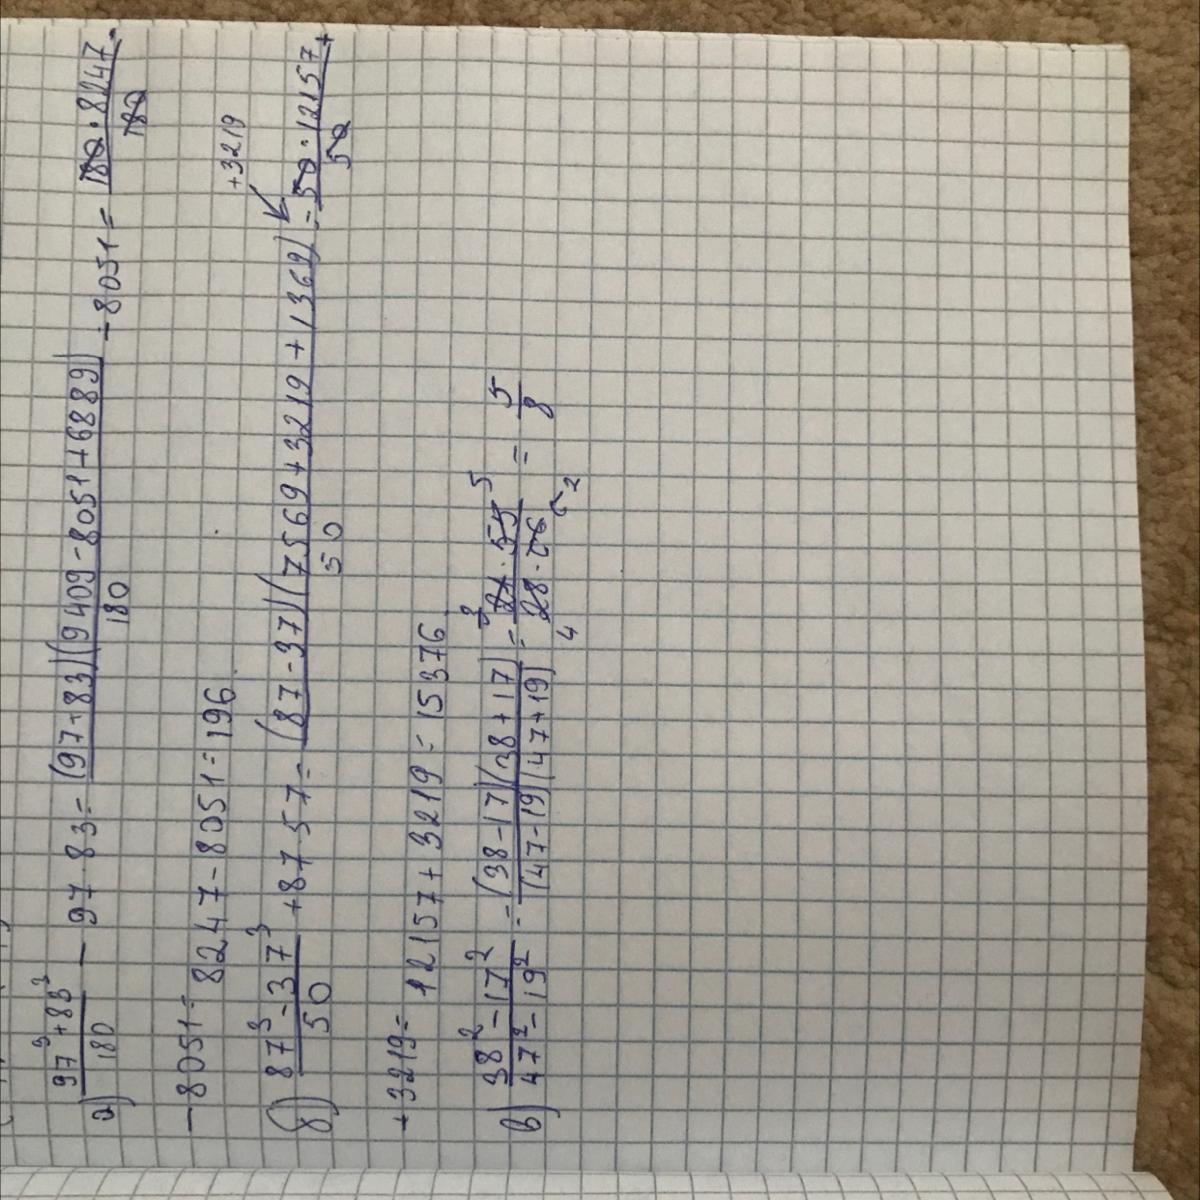 а) (97³+83³)/180 − 97·83 = (97+83)(9409-8051+6889)/180 − 8051 = 180·8247/180 -
− 8051 = 8247 − 8051 = 196
+3219
б) (87³-37³)/50 + 87·57 = (87-37)(7569+3219+1369)/50 = 50·12157/50 +
+3219 = 12157 + 3219 = 15376
в) (38²-17²)/(47²-19²) = (38-17)(38+17)/(47-19)(47+19) = 21·55/28·66 = 5/8